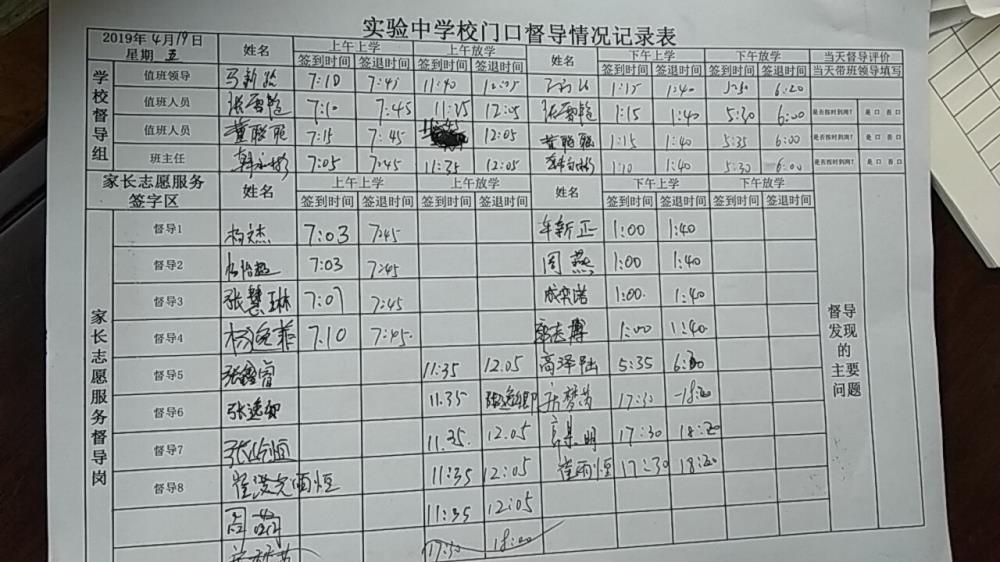 实验中学校门口督导情况记录表
2019年4月19日
星期 五
姓名 上午上学 上午放学 姓名 下午上学 下午放学 当天督导评价
签到时间 签退时间 签到时间 签退时间 签到时间 签退时间 签到时间 签退时间 当天带班领导填写
学校督导组
值班领导 7:10 7:45 11:40 1:15 1:40 6:20
值班人员 7:10 7:45 11:35 12:05 1:15 1:40 5:30 6:00 是否按时到岗? 是 口 否 口
值班人员 董聪聪 7:15 7:45 12:05 董聪聪 1:15 1:40 5:35 6:00 是否按时到岗? 是 口 否 口
班主任 7:05 7:45 11:35 12:05 1:10 1:40 5:30 6:00 是否按时到岗? 是 口 否 口
家长志愿服务
签字区
姓名 上午上学 上午放学 姓名 下午上学 下午放学
签到时间 签退时间 签到时间 签退时间 签到时间 签退时间 签到时间 签退时间
家长志愿服务督导岗
督导1 杨杰 7:03 7:45 牟新正 1:00 1:40
督导2 7:03 7:45 周燕 1:00 1:40
督导3 张慧琳 7:07 7:45 1:00 1:40
督导4 7.10 7:45 1:00 1:40
督导5 张鑫睿 11:35 12.05 高泽陆 5:35
督导6 张逸卿 11.35 张逸卿 17:30
督导7 11.35 12.05 17:30 18:20
督导8 11:35 12:05 崔雨恒 17:30 18:20
11:35 12:05
17:30 18:00
督导发现的主要问题